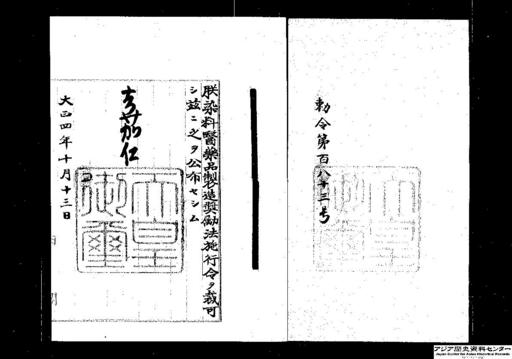 朕染料醫藥品製造奬勵法施行令ヲ裁可
シ茲ニ之ヲ公布セシム
嘉仁
天皇
御璽
大正四年十月十三日
勅令第百八十三号
アジア歴史資料センター
Japan Center for Asian Historical Records